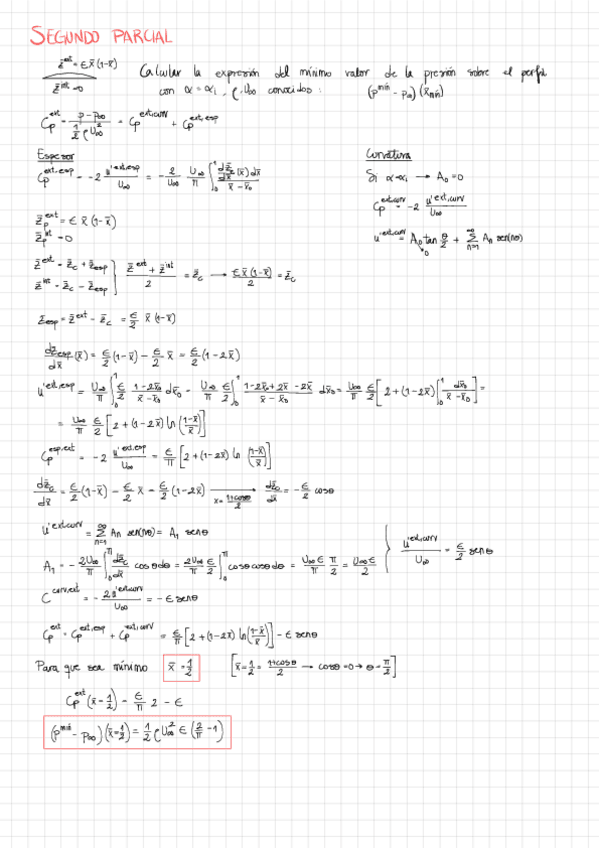 SEGUNDO PARCIAL
z̄ᵉˣᵗ = ε x̄ (1-x̄)
z̄ⁱⁿᵗ = 0
Calcular la expresión del mínimo valor de la presión sobre el perfil
con α = αᵢ, ρ, U∞ conocidos: (pᵐⁱⁿ - p∞)(x̄mín)
Cpᵉˣᵗ = (p - p∞) / (½ ρ U∞²) = Cpᵉˣᵗ,ᶜᵘʳᵛ + Cpᵉˣᵗ,ᵉˢᵖ
Espesor
Cpᵉˣᵗ,ᵉˢᵖ = -2 u'ᵉˣᵗ,ᵉˢᵖ / U∞ = - 2/U∞ U∞/π ∫₀¹
Curvatura
Si α = αᵢ → A₀ = 0
Cpᵉˣᵗ,ᶜᵘʳᵛ = -2 u'ᵉˣᵗ,ᶜᵘʳᵛ / U∞
u'ᵉˣᵗ,ᶜᵘʳᵛ = A₀ tan θ/2 + Σₙ₌₁^∞ Aₙ sen(nθ)
z̄pᵉˣᵗ = ε x̄ (1-x̄)
z̄pⁱⁿᵗ = 0
z̄ᵉˣᵗ = z̄c + z̄esp
z̄ⁱⁿᵗ = z̄c - z̄esp
(z̄ᵉˣᵗ + z̄ⁱⁿᵗ)/2 = z̄c → ε x̄ (1-x̄)/2 = z̄c
z̄esp = z̄ᵉˣᵗ - z̄c = ε/2 x̄ (1-x̄)
dz̄esp/dx̄ (x̄) = ε/2 (1-x̄) - ε/2 x̄ = ε/2 (1-2x̄)
u'ᵉˣᵗ,ᵉˢᵖ = U∞/π ∫₀¹ ε/2 (1-2x̄₀)/(x̄-x̄₀) dx̄₀ = U∞/π ε/2 ∫₀¹ (1-2x̄₀+2x̄-2x̄)/(x̄-x̄₀) dx̄₀ = U∞/π ε/2 [2+(1-2x̄) ∫₀¹ dx̄₀/(x̄-x̄₀)] =
= U∞/π ε/2 [2 + (1-2x̄) ln((1-x̄)/x̄)]
Cpᵉˢᵖ,ᵉˣᵗ = -2 u'ᵉˣᵗ,ᵉˢᵖ / U∞ = ε/π [2+(1-2x̄) ln((1-x̄)/x̄)]
dz̄c/dx̄ = ε/2 (1-x̄) - ε/2 x̄ = ε/2 (1-2x̄) → x = (1+cosθ)/2 dz̄c/dx̄ = -ε/2 cosθ
u'ᵉˣᵗ,ᶜᵘʳᵛ = Σₙ₌₁^∞ Aₙ sen(nθ) = A₁ senθ
A₁ = - 2U∞/π ∫₀^π dz̄c/dx̄ cosθ dθ = 2U∞/π ε/2 ∫₀^π cosθ cosθ dθ = U∞ε/π π/2 = U∞ε/2
u'ᵉˣᵗ,ᶜᵘʳᵛ / U∞ = ε/2 senθ
Cᶜᵘʳᵛ,ᵉˣᵗ = - 2u'ᵉˣᵗ,ᶜᵘʳᵛ / U∞ = -ε senθ
Cpᵉˣᵗ = Cpᵉˣᵗ,ᵉˢᵖ + Cpᵉˣᵗ,ᶜᵘʳᵛ = ε/π [2+(1-2x̄) ln((1-x̄)/x̄)] - ε senθ
Para que sea mínimo x̄ = 1/2 [x̄ = 1/2 = (1+cosθ)/2 → cosθ = 0 → θ = π/2]
Cpᵉˣᵗ (x̄ = 1/2) = ε/π 2 - ε
(pᵐⁱⁿ - p∞)(x̄ = 1/2) = ½ ρ U∞² ε (2/π - 1)